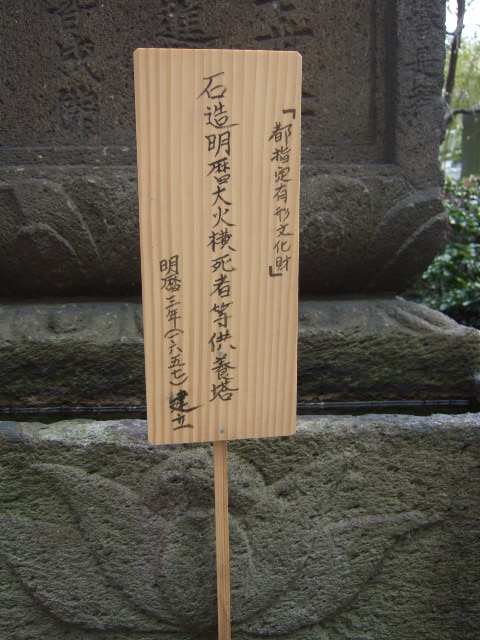 「都指定有形文化財」
石造明暦大火横死者等供養塔
明暦三年(一六五七)建立